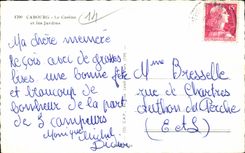 1200 CABOURG - Le Casino
et les Jardins
14
Ma chère mémère
Reçois avec de grosses
bises une bonne fête
et beaucoup de
bonheur de la part
de 3 campeurs
Monique Michel
Didier
Mme Bresselle
rue de Chartres
Authon du Perche
(E et L)